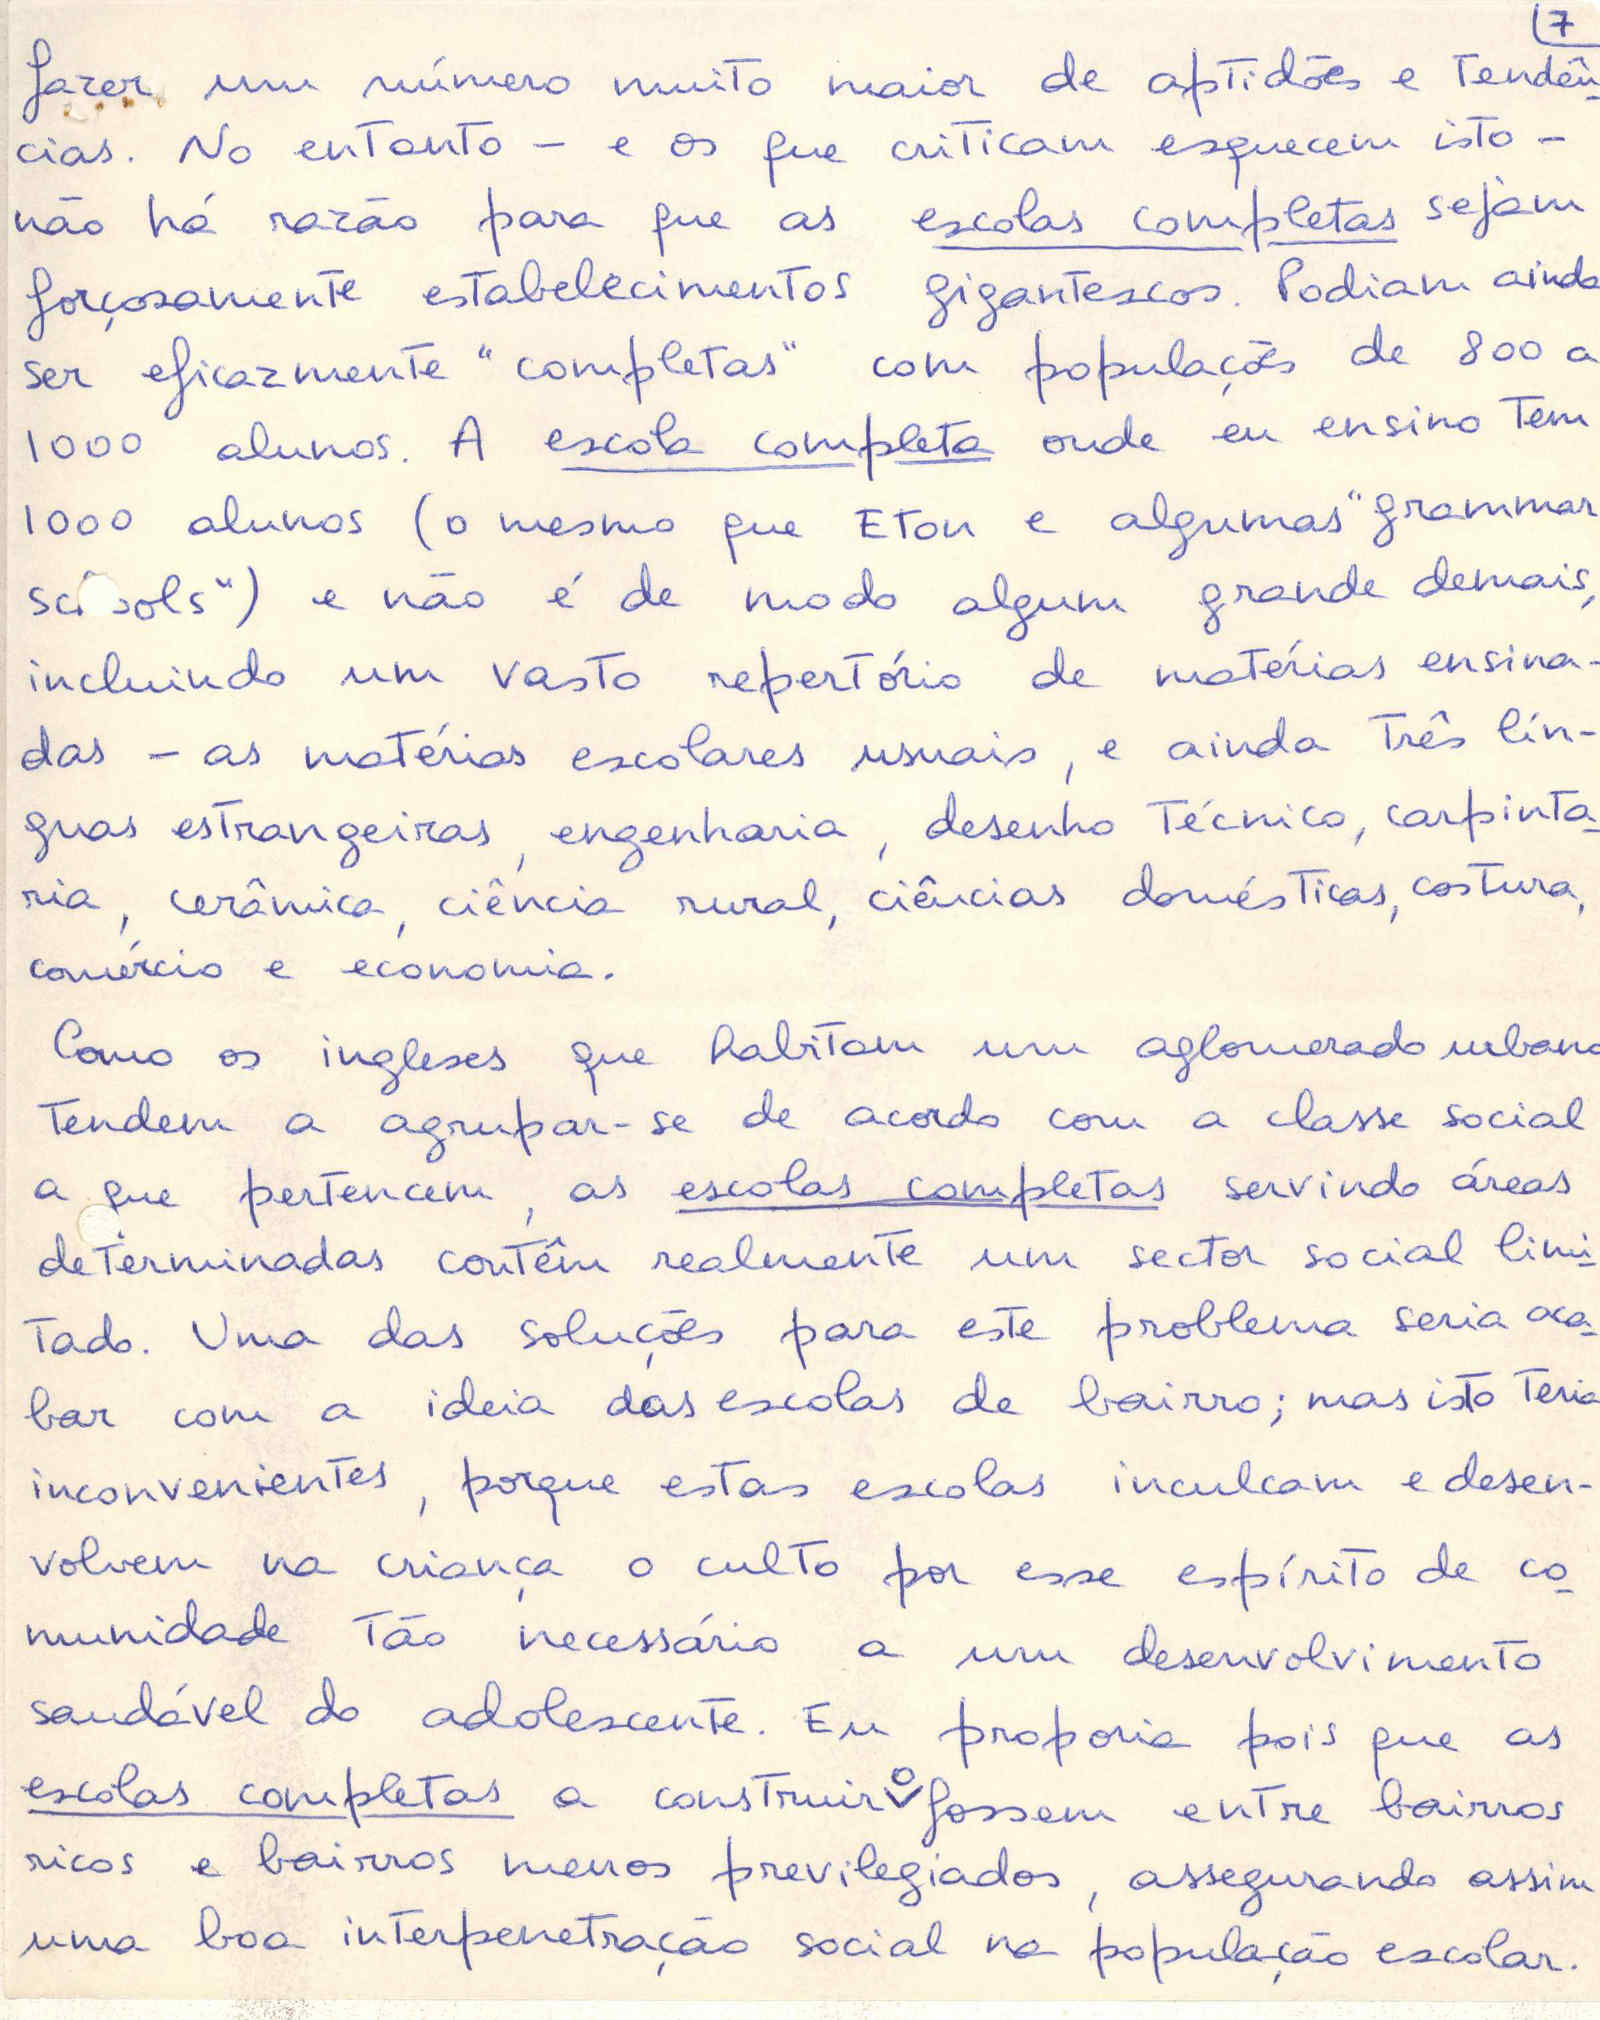 7
fazer um número muito maior de aptidões e tendên-
cias. No entanto – e os que criticam esquecem isto –
não há razão para que as escolas completas sejam
forçosamente estabelecimentos gigantescos. Podiam ainda
ser eficazmente "completas" com populações de 800 a
1000 alunos. A escola completa onde eu ensino tem
1000 alunos (o mesmo que Eton e algumas "grammar
schools") e não é de modo algum grande demais,
incluindo um vasto repertório de matérias ensina-
das – as matérias escolares usuais, e ainda três lín-
guas estrangeiras, engenharia, desenho técnico, carpinta-
ria, cerâmica, ciência rural, ciências domésticas, costura,
comércio e economia.
Como os ingleses que habitam um aglomerado urbano
tendem a agrupar-se de acordo com a classe social
a que pertencem, as escolas completas servindo áreas
determinadas contêm realmente um sector social limi-
tado. Uma das soluções para este problema seria aca-
bar com a ideia das escolas de bairro; mas isto teria
inconvenientes, porque estas escolas inculcam e desen-
volvem na criança o culto por esse espírito de co-
munidade tão necessário a um desenvolvimento
saudável do adolescente. Eu proporia pois que as
escolas completas a construir o fossem entre bairros
ricos e bairros menos previlegiados, assegurando assim
uma boa interpenetração social na população escolar.